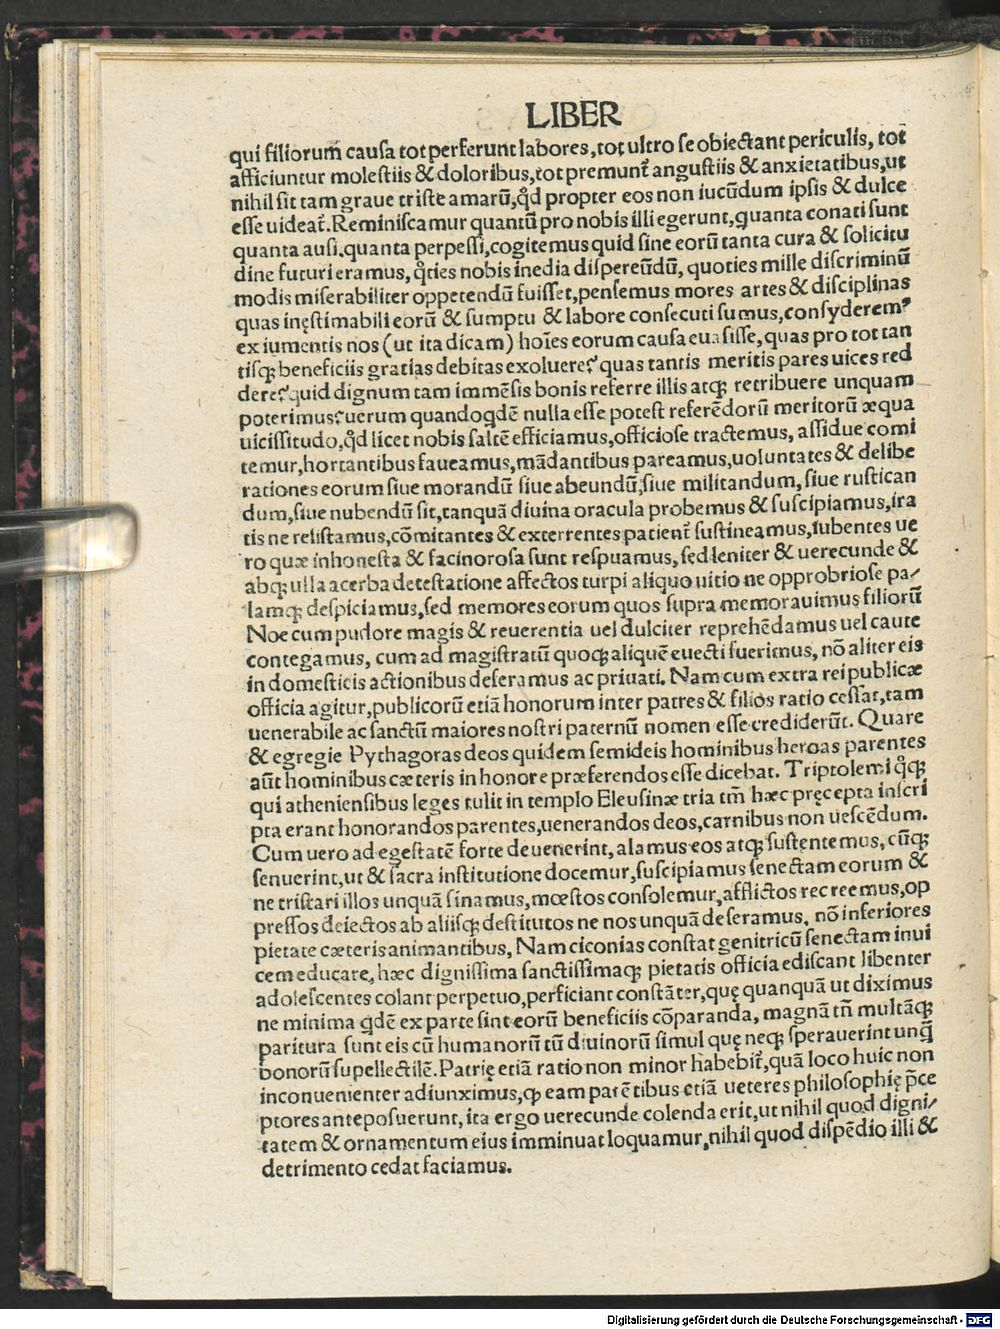 LIBER
qui filiorum̃ causa tot perferunt labores, tot ultro se obiectant periculis, tot
afficiuntur molestiis & doloribus, tot premunt᷑ angustiis & anxietatibus, ut
nihil sit tam graue triste amarũ, qd̛ propter eos non iucũdum ipsis & dulce
esse uideat᷑. Reminiscamur quantũ pro nobis illi egerunt, quanta conati sunt
quanta ausi. quanta perpessi, cogitemus quid sine eorũ tanta cura & solicitu
dine futuri eramus, q̊ties nobis inedia dispereũdũ, quoties mille discriminũ
modis miserabiliter oppetendũ fuisset, pensemus mores artes & disciplinas
quas inęstimabili eorũ & sumptu & labore consecuti sumus, consyderemꝰ
ex iumentis nos (ut ita dicam) hoĩes eorum causa euasisse, quas pro tot tan
tisqꝫ beneficiis gratias debitas exoluere? quas tantis meritis pares uices red
dere? quid dignum tam immẽsis bonis referre illis atqꝫ retribuere unquam
poterimus? uerum quandoqdẽ nulla esse potest referẽdorũ meritorũ æqua
uicissitudo, qd̛ licet nobis saltẽ efficiamus, officiose tractemus, assidue comi
temur, hortantibus faueamus, mãdantibus pareamus, uoluntates & delibe
rationes eorum siue morandũ siue abeundũ, siue militandum, siue rustican
dum, siue nubendũ sit, tanquã diuina oracula probemus & suscipiamus, ira
tis ne resistamus, cõmitantes & exterrentes patient᷑ sustineamus, iubentes ue
ro quæ inhonesta & facinorosa sunt respuamus, sed leniter & uerecunde &
absqꝫ ulla acerba detestatione affectos turpi aliquo uitio ne opprobriose pa/
lamqꝫ despiciamus, sed memores eorum quos supra memorauimus filiorũ
Noe cum pudore magis & reuerentia uel dulciter reprehẽdamus uel caute
contegamus, cum ad magistratũ quoqꝫ aliquẽ euecti fuerimus, nõ aliter eis
in domesticis actionibus deferamus ac priuati. Nam cum extra rei publicæ
officia agitur, publicorũ etiã honorum inter patres & filios ratio cessat, tam
uenerabile ac sanctũ maiores nostri paternũ nomen esse crediderũt. Quare
& egregie Pythagoras deos quidem semideis hominibus heroas parentes
aũt hominibus cæteris in honore præferendos esse dicebat. Triptolemi q̊qꝫ
qui atheniensibus leges tulit in templo Eleusinæ tria tm̃ hæc pręcepta inscri
pta erant honorandos parentes, uenerandos deos, carnibus non uescẽdum.
Cum uero ad egestatẽ forte deuenerint, alamus eos atqꝫ sustentemus, cũqꝫ
senuerint, ut & sacra institutione docemur, suscipiamus senectam eorum &
ne tristari illos unquã sinamus, mœstos consolemur, afflictos recreemus, op
pressos deiectos ab aliisqꝫ destitutos ne nos unquã deseramus, nõ inferiores
pietate cæteris animantibus, Nam ciconias constat genitricũ senectam inui
cem educare, hæc dignissima sanctissimaqꝫ pietatis officia ediscant libenter
adolescentes colant perpetuo, perficiant constãter, quę quanquã ut diximus
ne minima qdẽ ex parte sint eorũ beneficiis cõparanda, magnã tñ multãqꝫ
paritura sunt eis cũ humanorũ tũ diuinorũ simul quę neqꝫ sperauerint unq̃
bonorũ supellectilẽ. Patrię etiã ratio non minor habebit᷑, quã loco huic non
inconuenienter adiunximus, ꝙ eam parẽtibus etiã ueteres philosophię p̃ce
ptores anteposuerunt, ita ergo uerecunde colenda erit, ut nihil quod digni/
tatem & ornamentum eius imminuat loquamur, nihil quod dispẽdio illi &
detrimento cedat faciamus.
Digitalisierung gefördert durch die Deutsche Forschungsgemeinschaft - DFG